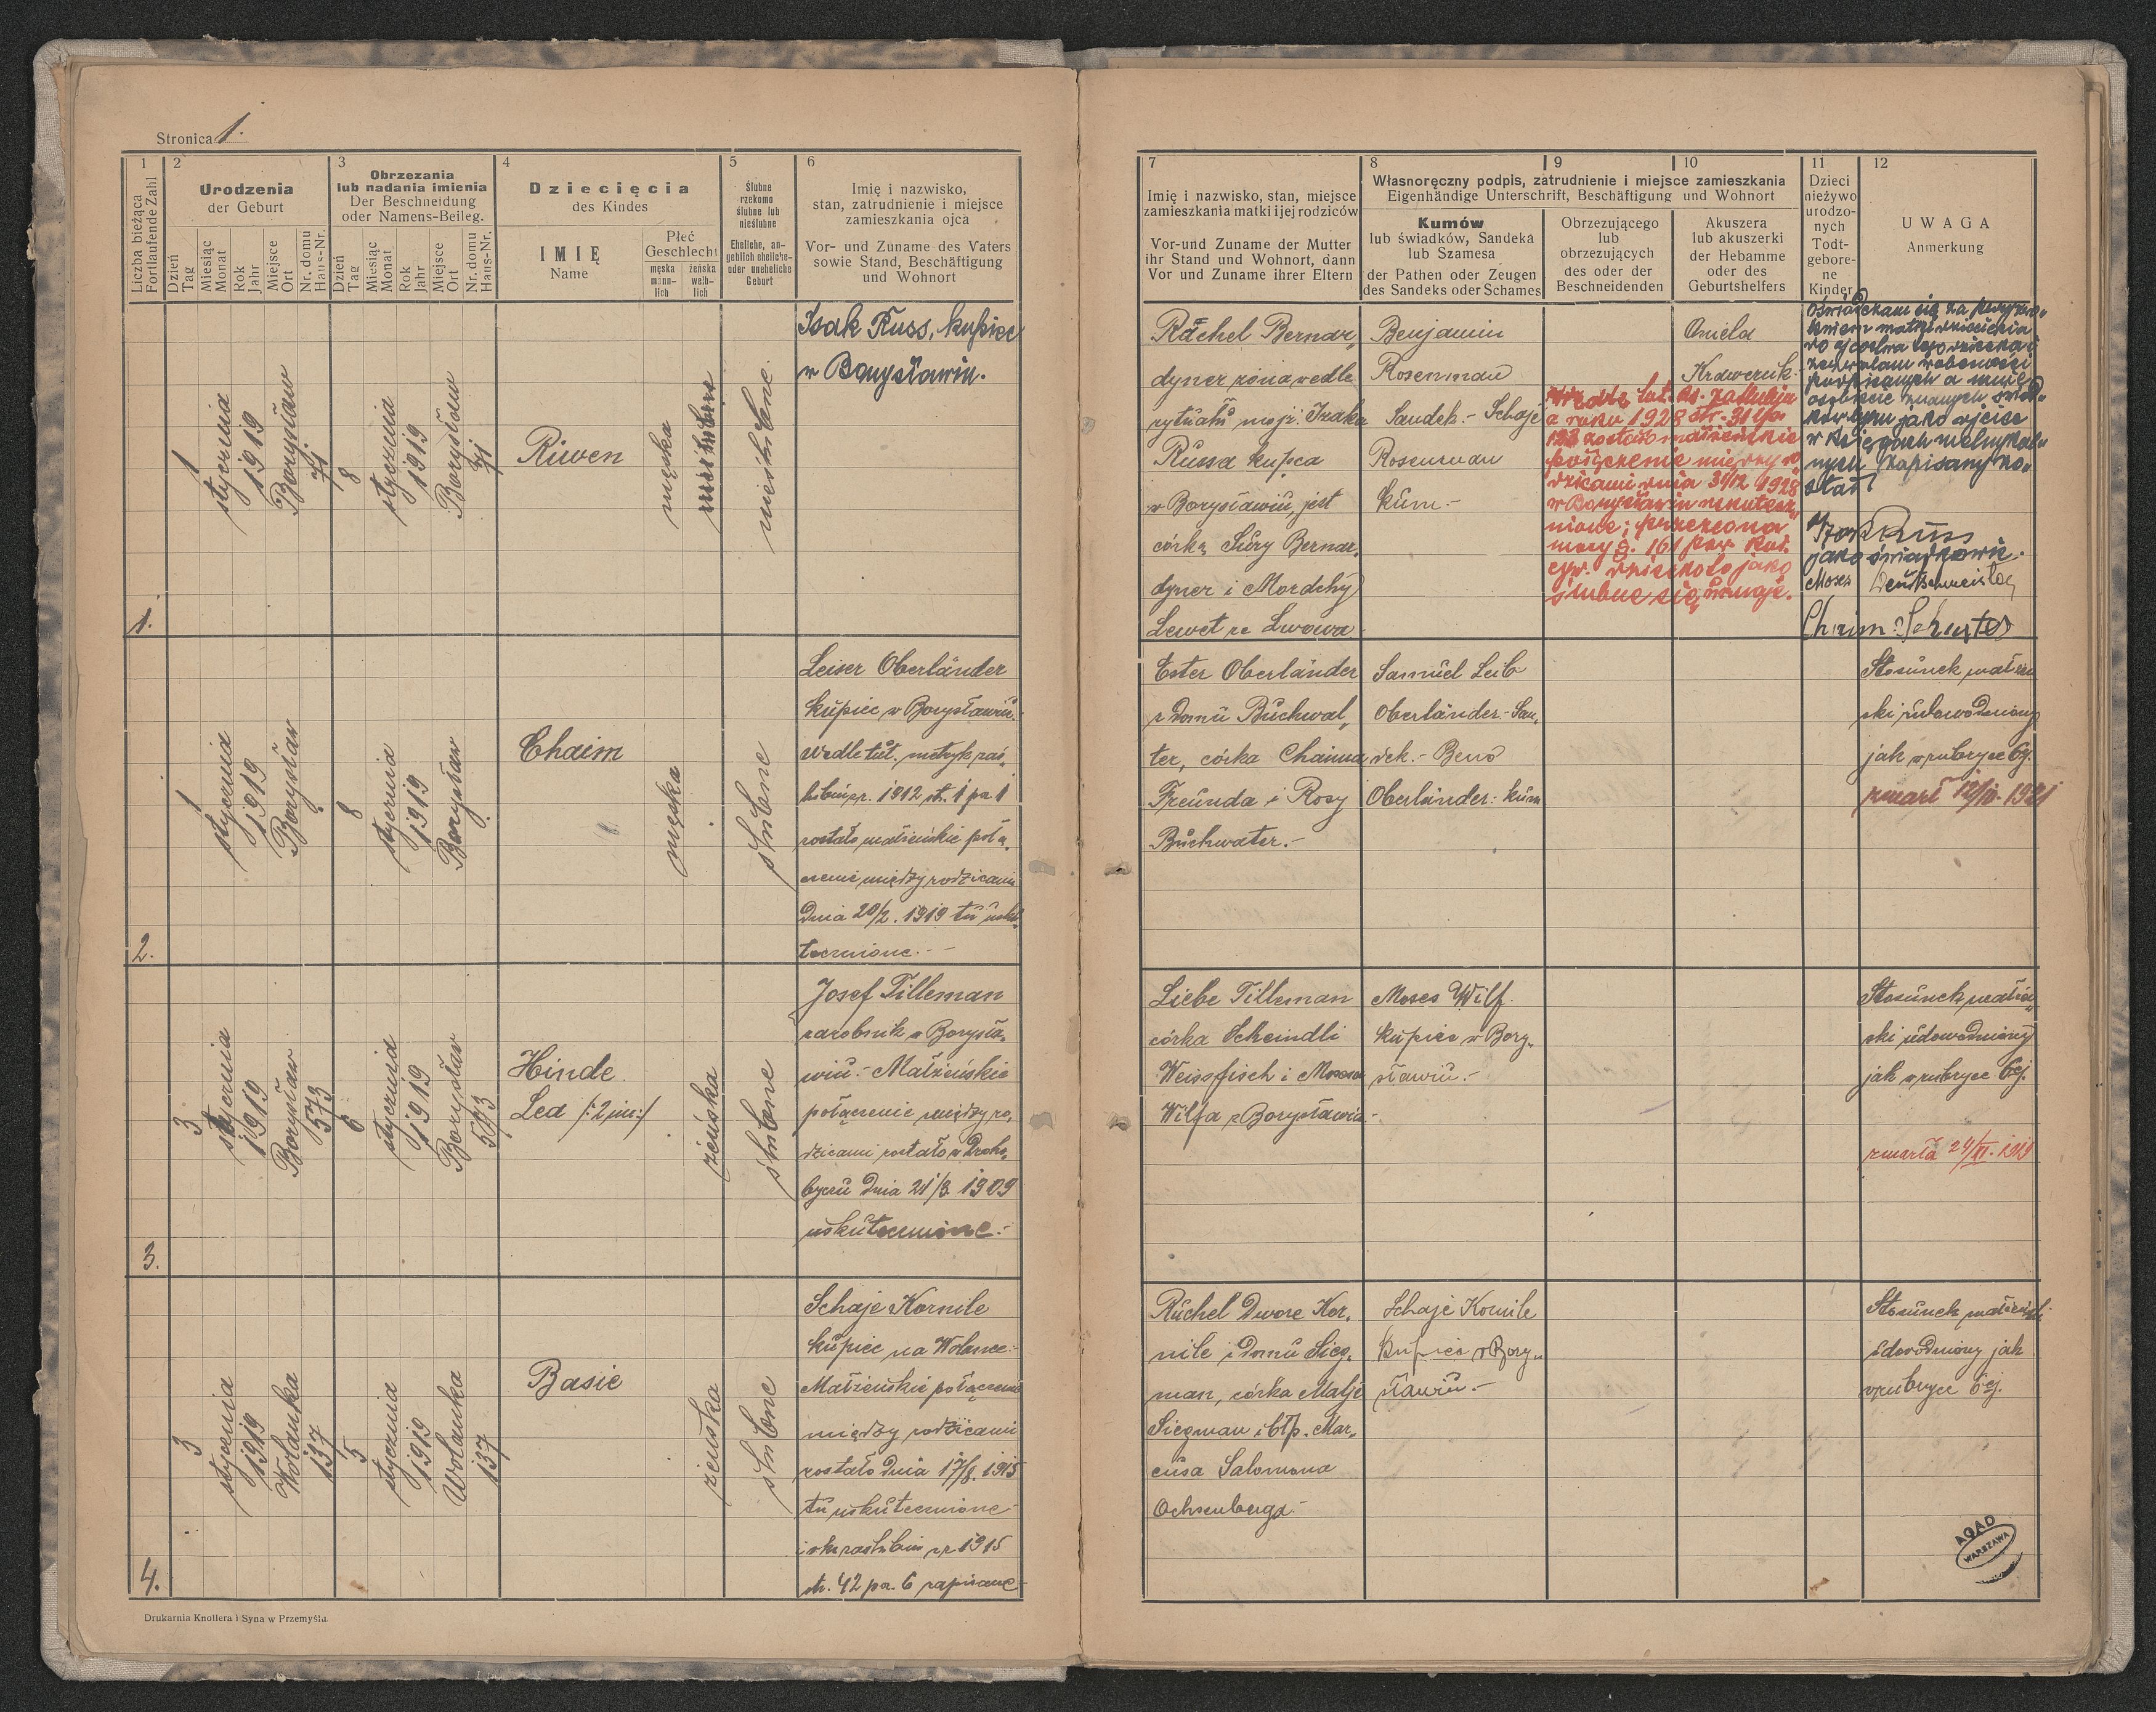 Stronica 1.
1
Liczba bieżąca
Fortlaufende Zahl
2
Urodzenia
der Geburt
Dzień
Tag
Miesiąc
Monat
Rok
Jahr
Miejsce
Ort
Nr. domu
Haus-Nr.
3
Obrzezania
lub nadania imienia
Der Beschneidung
oder Namens-Beileg.
Dzień
Tag
Miesiąc
Monat
Rok
Jahr
Miejsce
Ort
Nr. domu
Haus-Nr.
4
Dziecięcia
des Kindes
IMIĘ
Name
Płeć
Geschlecht
męska
männ-
lich
żeńska
weib-
lich
5
Ślubne
rzekomo
ślubne lub
nieślubne
Eheliche, an-
geblich eheliche-
oder uneheliche
Geburt
6
Imię i nazwisko,
stan, zatrudnienie i miejsce
zamieszkania ojca
Vor- und Zuname des Vaters
sowie Stand, Beschäftigung
und Wohnort
1.
1
stycznia
1919
Borysław
71
8
stycznia
1919
Borysław
71
Riwen
męska
nieślubne
Isak Russ, kupiec
w Borysławiu.
2.
1
stycznia
1919
Borysław
8
stycznia
1919
Borysław
Chaim
męska
ślubne
Leiser Oberländer
kupiec w Borysławiu.
Wedle tut. metryk zaś„
1912 str. 1 po 1
zostało małżeńskie połą„
czenie między rodzicami
dnia 20/2. 1919 tu usku„
tecznione. -
3.
3
stycznia
1919
Borysław
573
6
stycznia
1919
Borysław
573
Hinde
Lea /: 2 im :/
żeńska
ślubne
Josef Tilleman
zarobnik w Borysła„
wiu. - Małżeńskie
połączenie między ro„
dzicami zostało w Droho„
byczu dnia 21/3 1909
uskutecznione. -
4.
3
stycznia
1919
Wolanka
137
5
stycznia
1919
Wolanka
137
Basie
żeńska
ślubne
Schaje Kornile
kupiec na Wolance. -
Małżeńskie połączenie
między rodzicami
zostało dnia 17/8. 1915
tu uskutecznione
1915
str. 42 po. 6 zapisane. -
Drukarnia Knollera i Syna w Przemyślu
7
Imię i nazwisko, stan, miejsce
zamieszkania matki i jej rodziców
Vor-und Zuname der Mutter
ihr Stand und Wohnort, dann
Vor und Zuname ihrer Eltern
8
9
10
Własnoręczny podpis, zatrudnienie i miejsce zamieszkania
Eigenhändige Unterschrift, Beschäftigung und Wohnort
Kumów
lub świadków, Sandeka
lub Szamesa
der Pathen oder Zeugen
des Sandeks oder Schames
Obrzezującego
lub
obrzezujących
des oder der
Beschneidenden
Akuszera
lub akuszerki
der Hebamme
oder des
Geburtshelfers
11
Dzieci
nieżywo
urodzo-
nych
Todt-
gebore-
ne
Kinder
12
UWAGA
Anmerkung
Rachel Bernar„
dyner żona wedle
rytuału mojż. Izaka
Russa kupca
w Borysławiu, jest
córką Sury Bernar„
dyner i Mordchy
Lewet ze Lwowa
Benjamin
Rosenman
Sandek. - Schaje
Rosenman
kum. -
Wedle tut. ks. zaślubin
z roku 1928 str. 31 l.po.
123 zostało małżeńskie
połączenie między ro„
dzicami dnia 31/12 1928
w Borysławiu uskutecz„
nione; przeto na
mocy §. 161 pow. kod.
cyw. dziecko to jako
ślubne się uznaje.
Aniela
Krawczuk.
Oświadczam się za przyzwo„
leniem matki dziecięcia
do ojcostwa tego dziecka i
zezwalam w obecności
podpisanych a mnie
osobiście znanych świad„
ków bym jako ojciec
w księgach metrykal„
nych zapisany zo„
stał
Izak Russ
jako świadkowie.
Moses Deutschmeister
Chaim Schuster
Ester Oberländer
z domu Buchwal„
ter, córka Chaima
Freunda i Rozy
Buchwater. -
Samuel Leib
Oberländer. - San„
dek. - Beno
Oberländer: kum
Stosunek małżeń„
ski udowodniony
jak w rubryce 6ej.
zmarł 12/IV. 1921
Liebe Tilleman
córka Scheindli
Weissfisch i Mosesa
Wilfa z Borysławia. -
Moses Wilf.
kupiec w Bory„
sławiu. -
Stosunek małżeń„
ski udowodniony
jak w rubryce 6ej.
zmarła 24/XI. 1919
Ruchel Dwore Kor„
nile z domu Sieg„
man, córka Malje
Siegman i błp. Mar„
cusa Salomona
Ochsenberga. -
Schaje Kornile
Kupiec w Bory„
sławiu. -
Stosunek małżeński
udowodniony jak
w rubryce 6ej.
AGAD
WARSZAWA